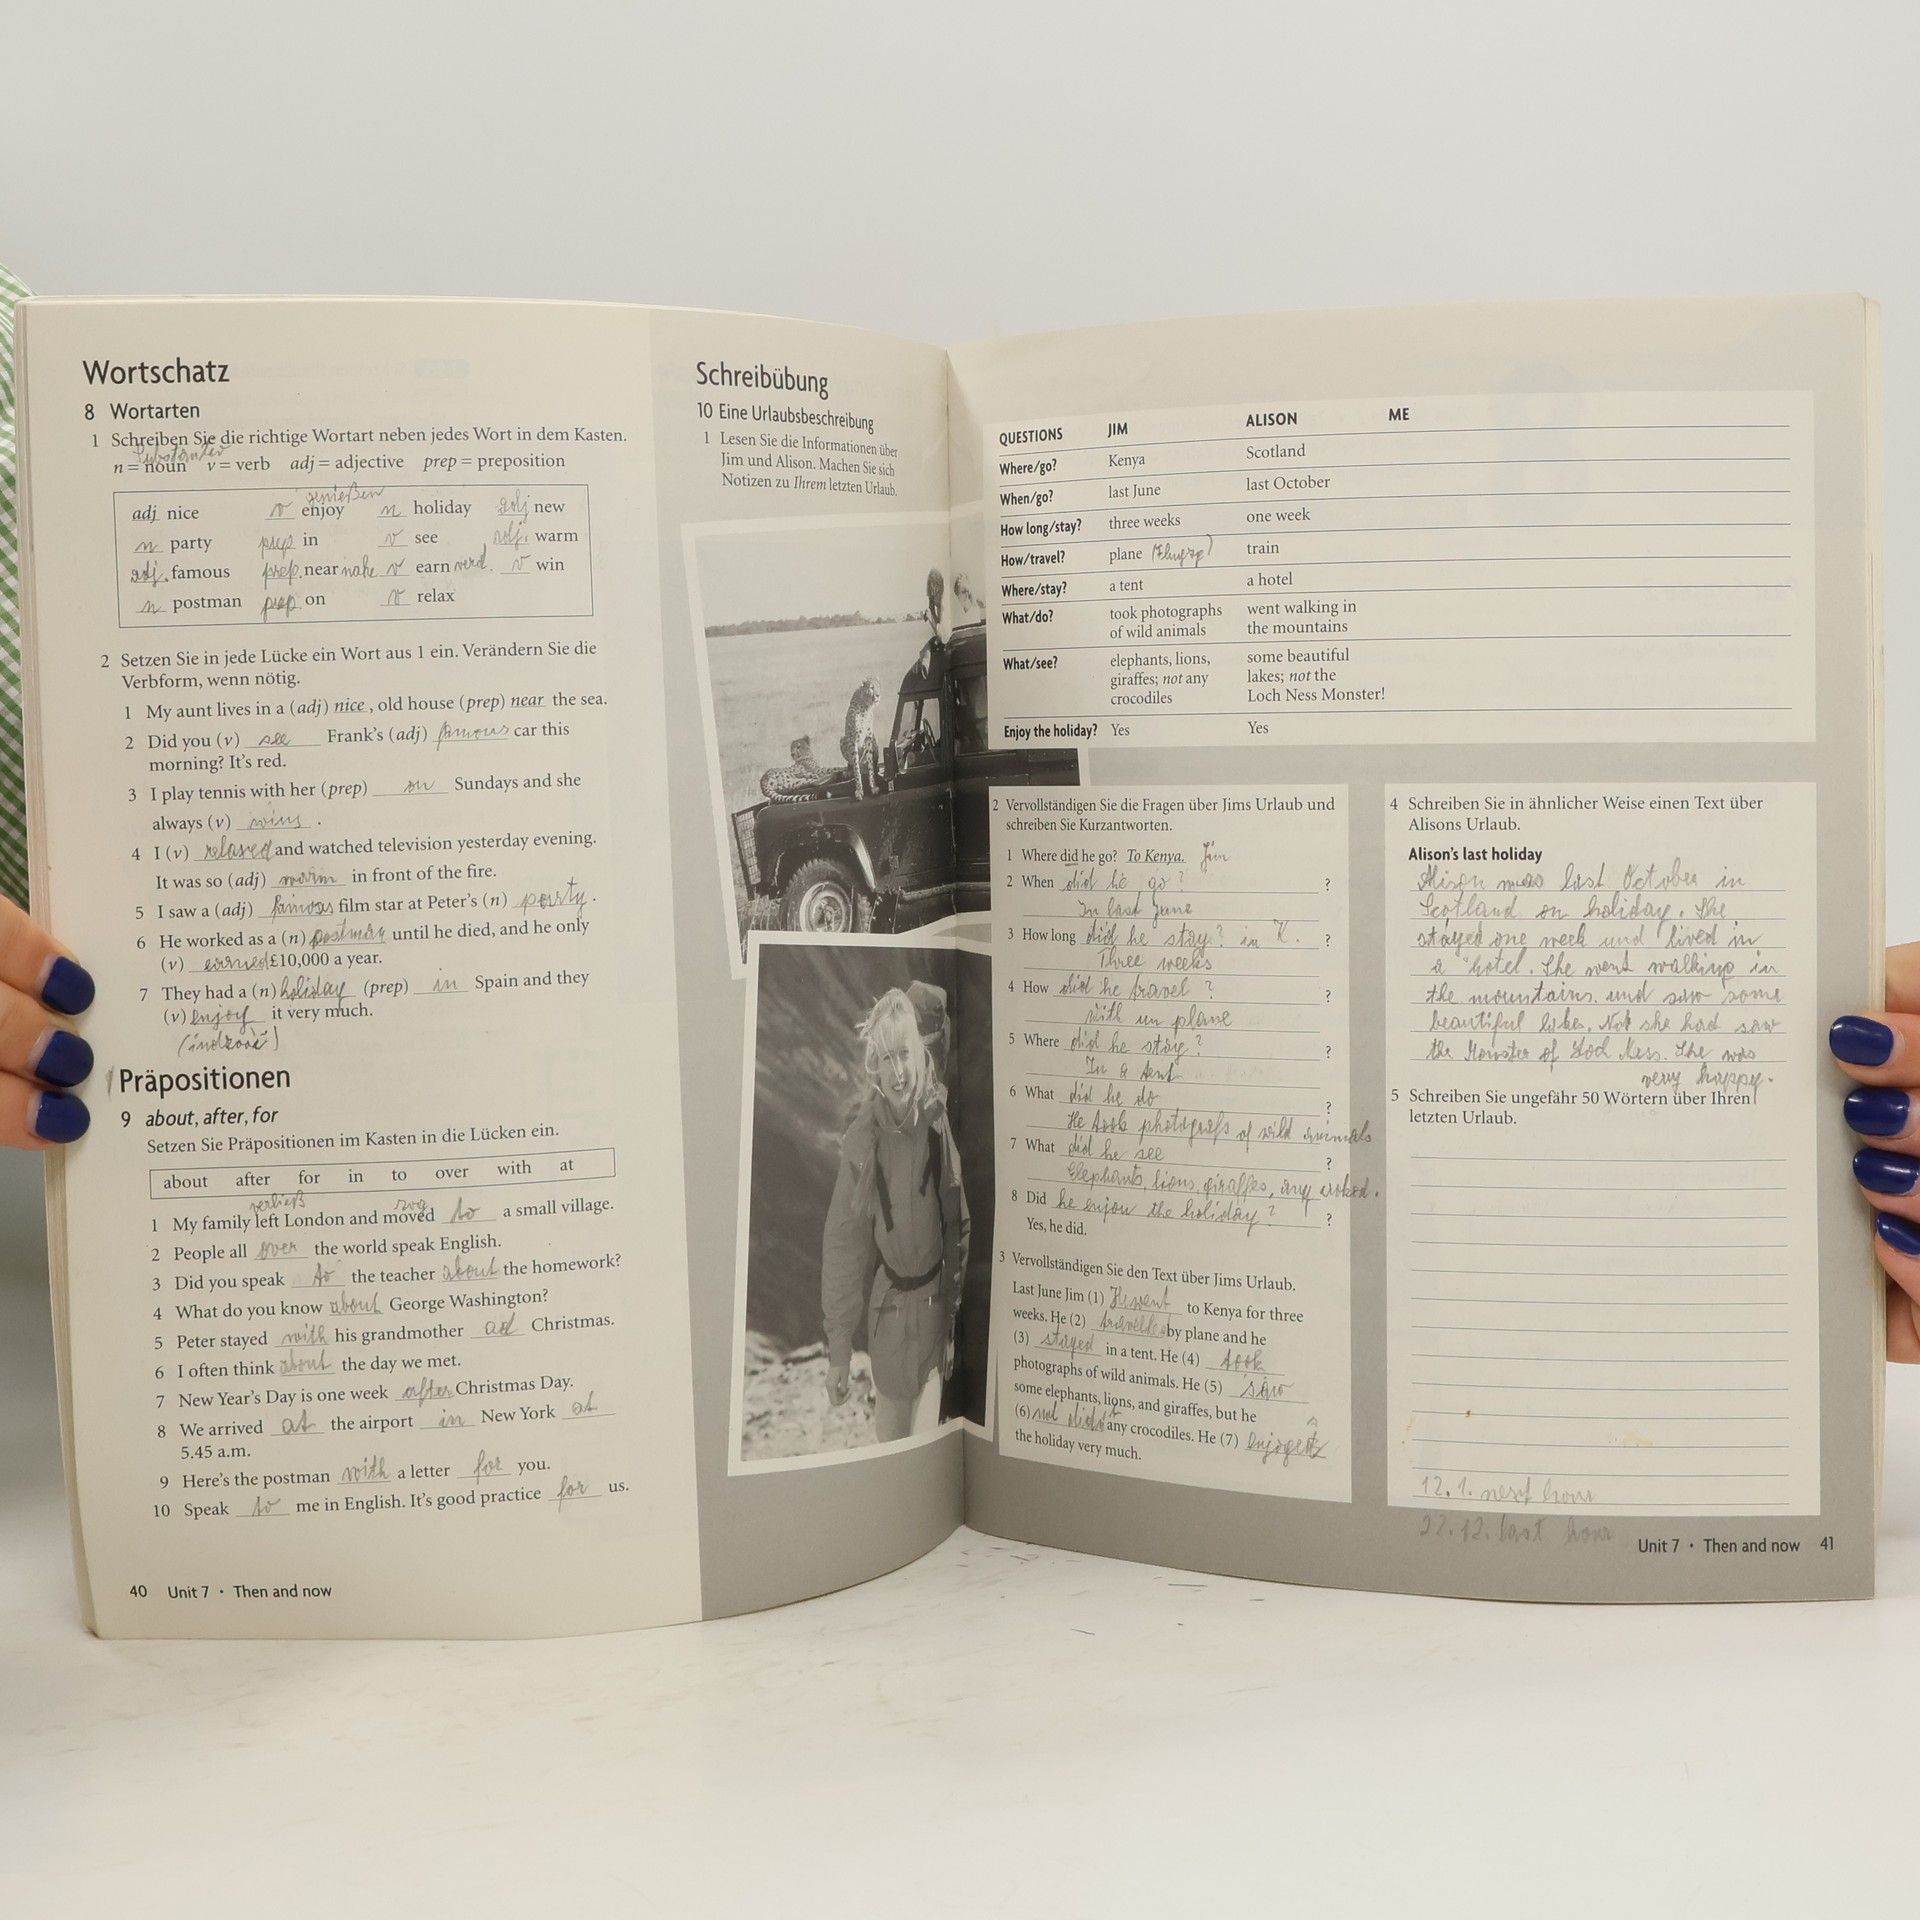 Wortschatz
8 Wortarten
1 Schreiben Sie die richtige Wortart neben jedes Wort in dem Kasten.
Substantiv
n = noun v = verb adj = adjective prep = preposition
genießen
adj nice v enjoy n holiday adj new
n party prep in v see adj. warm
adj. famous prep. near nahe v earn verd. v win
n postman prep on v relax
2 Setzen Sie in jede Lücke ein Wort aus 1 ein. Verändern Sie die
Verbform, wenn nötig.
1 My aunt lives in a (adj) nice, old house (prep) near the sea.
2 Did you (v) see Frank's (adj) famous car this
morning? It's red.
3 I play tennis with her (prep) on Sundays and she
always (v) wins.
4 I (v) relaxed and watched television yesterday evening.
It was so (adj) warm in front of the fire.
5 I saw a (adj) famous film star at Peter's (n) party.
6 He worked as a (n) postman until he died, and he only
(v) earned £10,000 a year.
7 They had a (n) holiday (prep) in Spain and they
(v) enjoy it very much.
Präpositionen
9 about, after, for
Setzen Sie Präpositionen im Kasten in die Lücken ein.
about after for in to over with at
verließ zog
1 My family left London and moved to a small village.
2 People all over the world speak English.
3 Did you speak to the teacher about the homework?
4 What do you know about George Washington?
5 Peter stayed with his grandmother at Christmas.
6 I often think about the day we met.
7 New Year's Day is one week after Christmas Day.
8 We arrived at the airport in New York at
5.45 a.m.
9 Here's the postman with a letter for you.
10 Speak to me in English. It's good practice for us.
40 Unit 7 · Then and now
Schreibübung
10 Eine Urlaubsbeschreibung
1 Lesen Sie die Informationen über
Jim und Alison. Machen Sie sich
Notizen zu Ihrem letzten Urlaub.
QUESTIONS JIM ALISON ME
Where/go? Kenya Scotland
When/go? last June last October
How long/stay? three weeks one week
How/travel? plane train
Where/stay? a tent a hotel
What/do? took photographs went walking in
of wild animals the mountains
What/see? elephants, lions, some beautiful
giraffes; not any lakes; not the
crocodiles Loch Ness Monster!
Enjoy the holiday? Yes Yes
2 Vervollständigen Sie die Fragen über Jims Urlaub und
schreiben Sie Kurzantworten.
1 Where did he go? To Kenya. Jim
2 When did he go? ?
In last June
3 How long did he stay? in K. ?
Three weeks
4 How did he travel? ?
with un plane
5 Where did he stay? ?
In a tent
6 What did he do ?
He took photografs of wild animals
7 What did he see ?
Elephants, lions, giraffes, any crokod.
8 Did he enjou the holiday? ?
Yes, he did.
3 Vervollständigen Sie den Text über Jims Urlaub.
Last June Jim (1) He went to Kenya for three
weeks. He (2) by plane and he
(3) stayed in a tent. He (4) took
photographs of wild animals. He (5) saw
some elephants, lions, and giraffes, but he
(6) not any crocodiles. He (7)
the holiday very much.
4 Schreiben Sie in ähnlicher Weise einen Text über
Alisons Urlaub.
Alison's last holiday
Alison was last October in
Scotland on holiday. She
stayed one week und lived in
a hotel. She went walking in
the mountains und saw some
beautiful lakes. Not she had saw
the Monster of Ness. She was
very happy.
5 Schreiben Sie ungefähr 50 Wörtern über Ihren
letzten Urlaub.
12.1. next hour
22.12. last hour
Unit 7 · Then and now 41